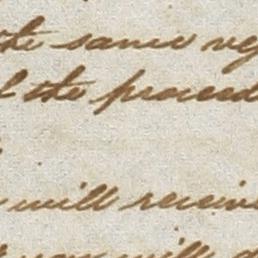 the same
the proceed
will receive
you will